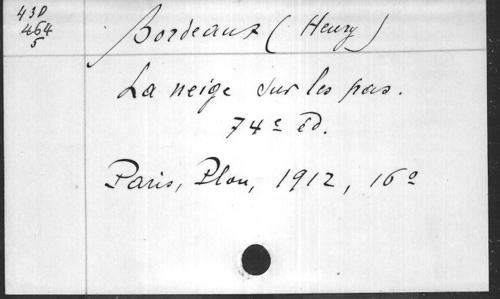 43D
464
5
Bordeaux (Henry)
La neige sur les pas.
74e éd.
Paris, Plon, 1912, 16o